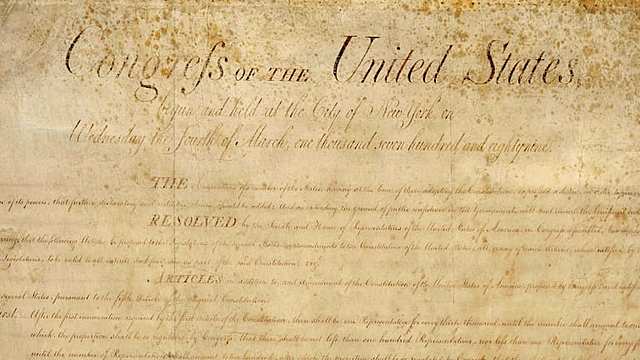 Congreſs OF THE United States,
begun and held at the City of New York, on
Wednesday the fourth of March, one thousand seven hundred and eighty nine.
THE Conventions of a number of the States, having at the time of their adopting the Constitution, expressed a desire, in order to prevent
of its powers, that further declaratory and restrictive clauses should be added: And as extending the ground of public confidence in the Government, will best ensure the beneficent ends
RESOLVED by the Senate and House of Representatives of the United States of America, in Congress assembled, two thirds
concurring, that the following Articles be proposed to the Legislatures of the several States, as amendments to the Constitution of the United States, all, or any of which Articles, when ratified by
Legislatures, to be valid to all intents and purposes, as part of the said Constitution; viz.
ARTICLES in addition to, and Amendment of the Constitution of the United States of America, proposed by Congress, and ratified
several States, pursuant to the fifth Article of the original Constitution.
First. After the first enumeration required by the first Article of the Constitution, there shall be one Representative for every thirty thousand, until the number shall amount to one
which, the proportion shall be so regulated by Congress, that there shall be not less than one hundred Representatives, nor less than one Representative for every
until the number of Representatives shall amount to two hundred, after which the proportion shall be so regulated by Congress